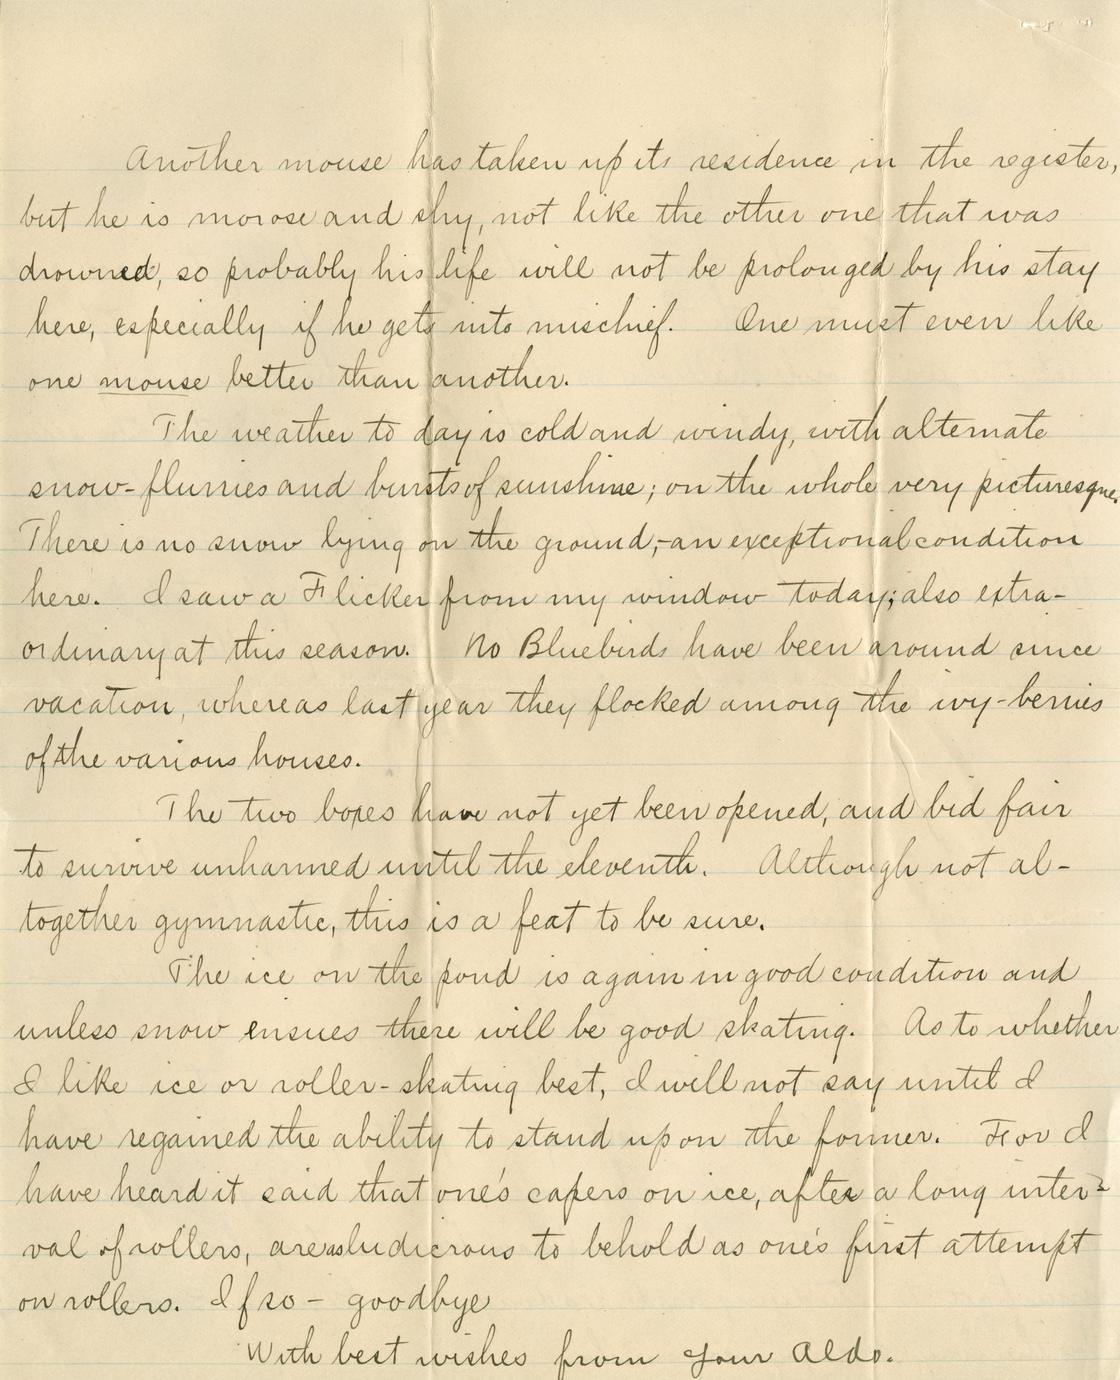 Another mouse has taken up its residence in the register,
but he is morose and shy, not like the other one that was
drowned, so probably his life will not be prolonged by his stay
here, especially if he gets into mischief. One must even like
one mouse better than another.
The weather to day is cold and windy, with alternate
snow-flurries and bursts of sunshine; on the whole very picturesque.
There is no snow lying on the ground,-an exceptional condition
here. I saw a Flicker from my window today; also extra-
ordinary at this season. No Bluebirds have been around since
vacation, whereas last year they flocked among the ivy-berries
of the various houses.
The two boxes have not yet been opened, and bid fair
to survive unharmed until the eleventh. Although not al-
together gymnastic, this is a feat to be sure.
The ice on the pond is again in good condition and
unless snow ensues there will be good skating. As to whether
I like ice or roller-skating best, I will not say until I
have regained the ability to stand upon the former. For I
have heard it said that one's capers on ice, after a long inter-
val of rollers, are as ludicrous to behold as one's first attempt
on rollers. If so - goodbye
With best wishes from your Aldo.